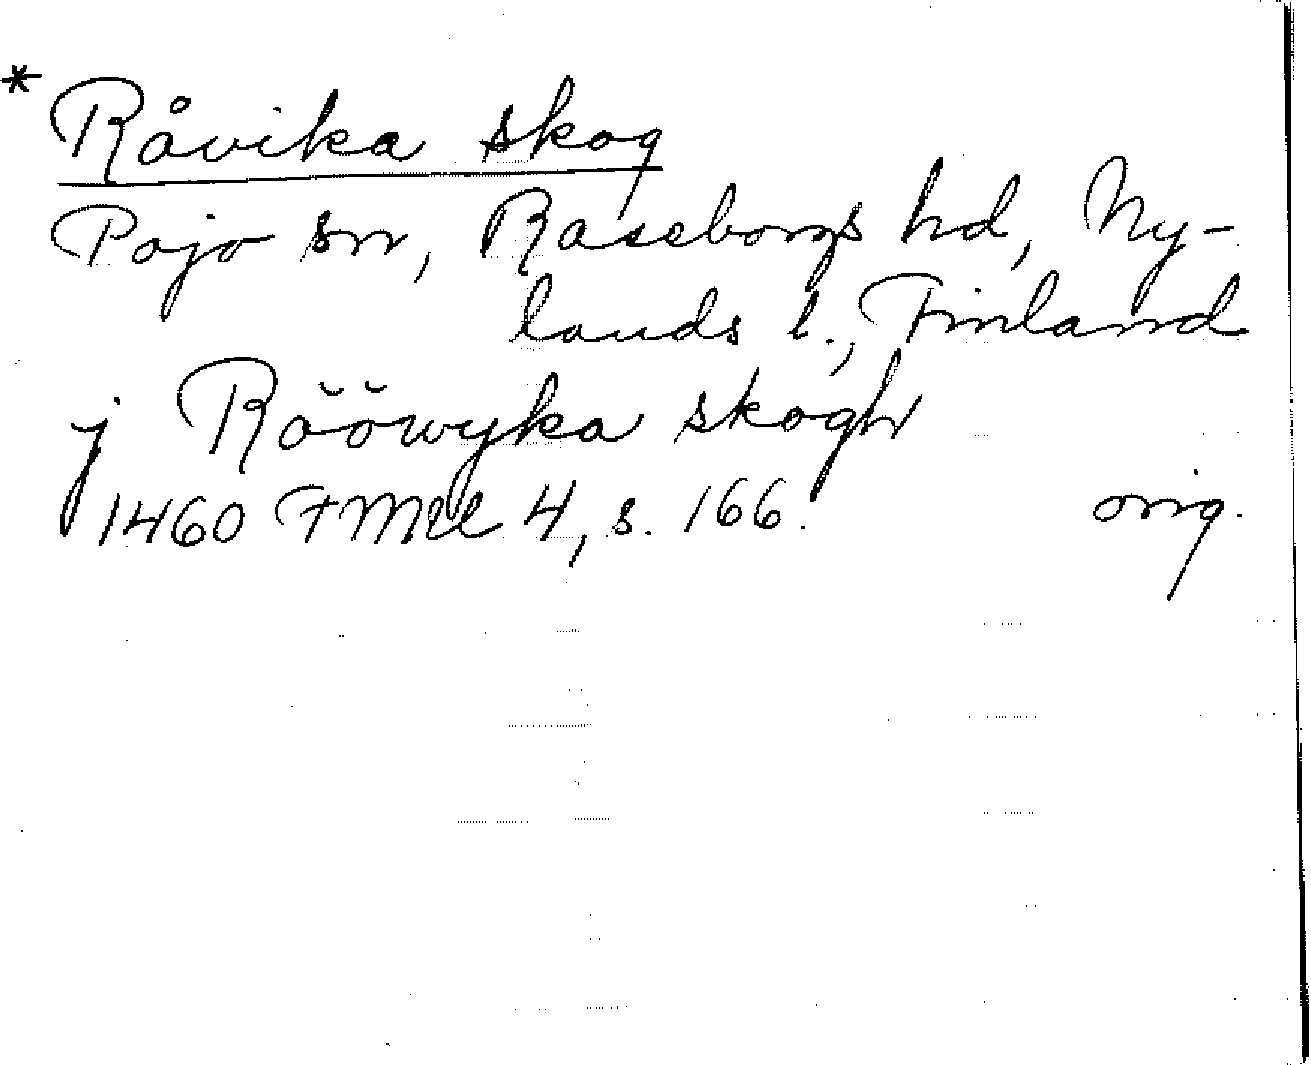 * Råvika skog
Pojo sn, Raseborgs hd, Ny-
lands l., Finland
j Rŏŏwyka skogh
1460 FMU 4, s. 166. orig.